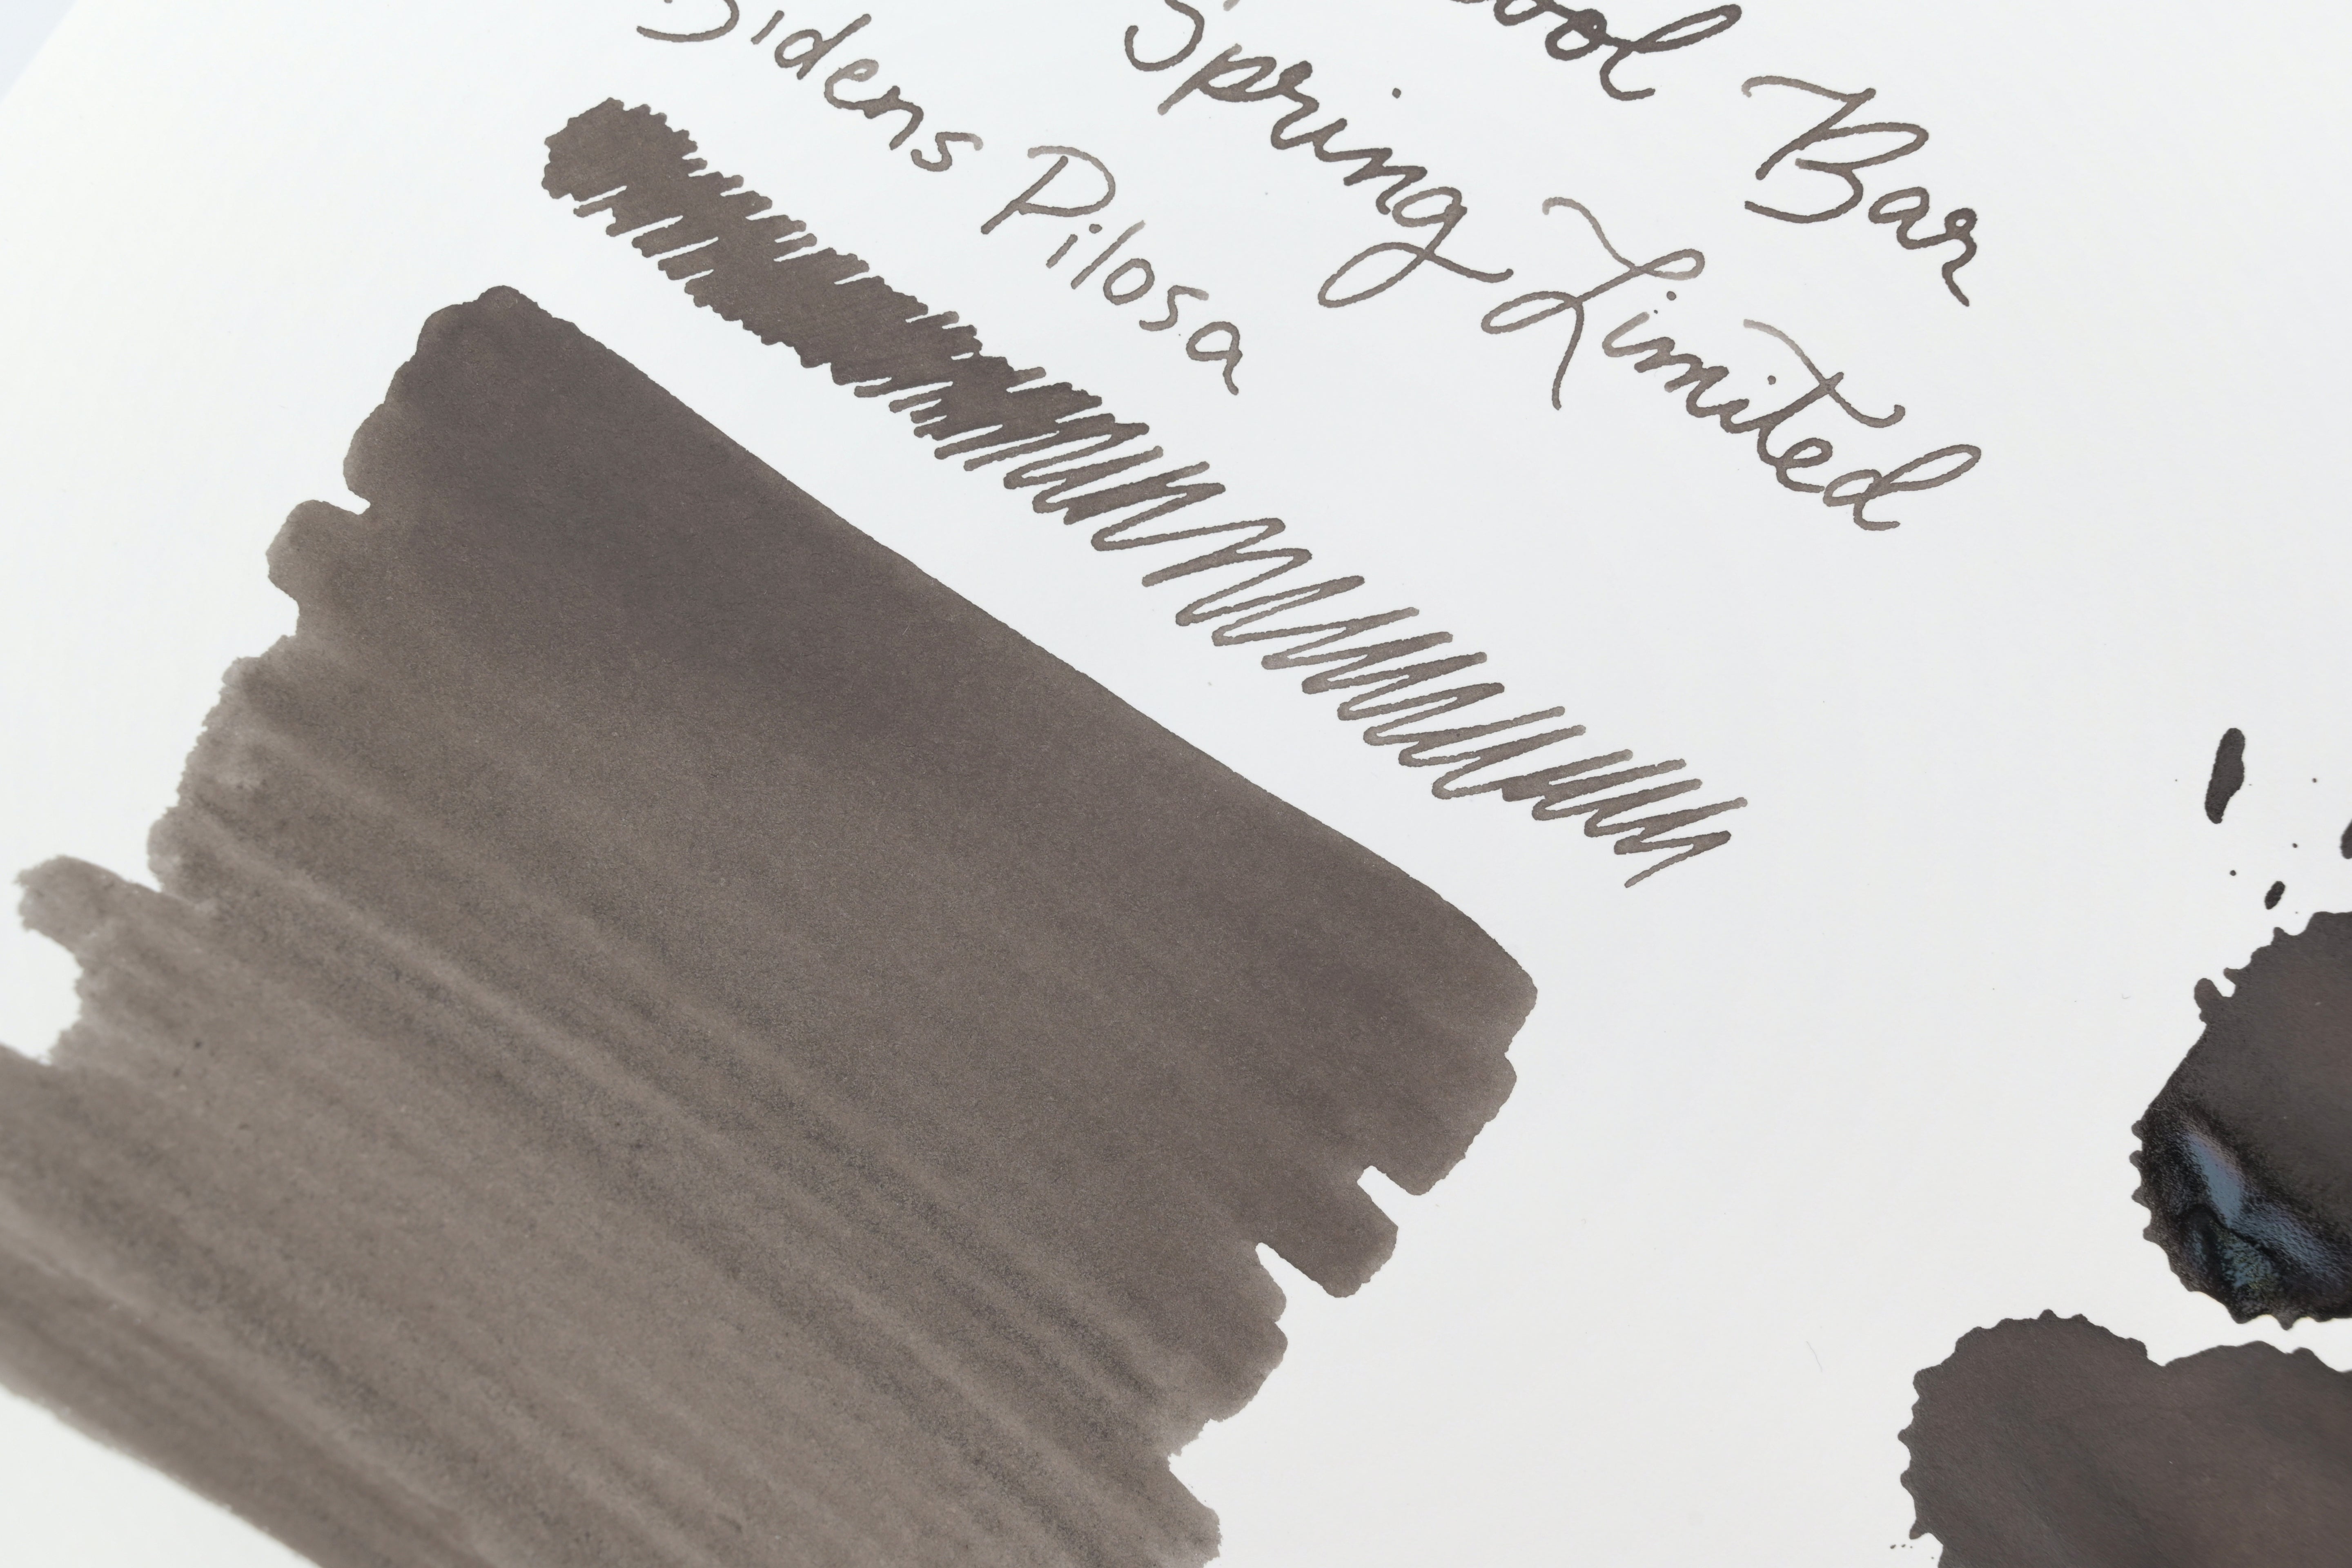 Bar
Spring Limited
Bidens Pilosa